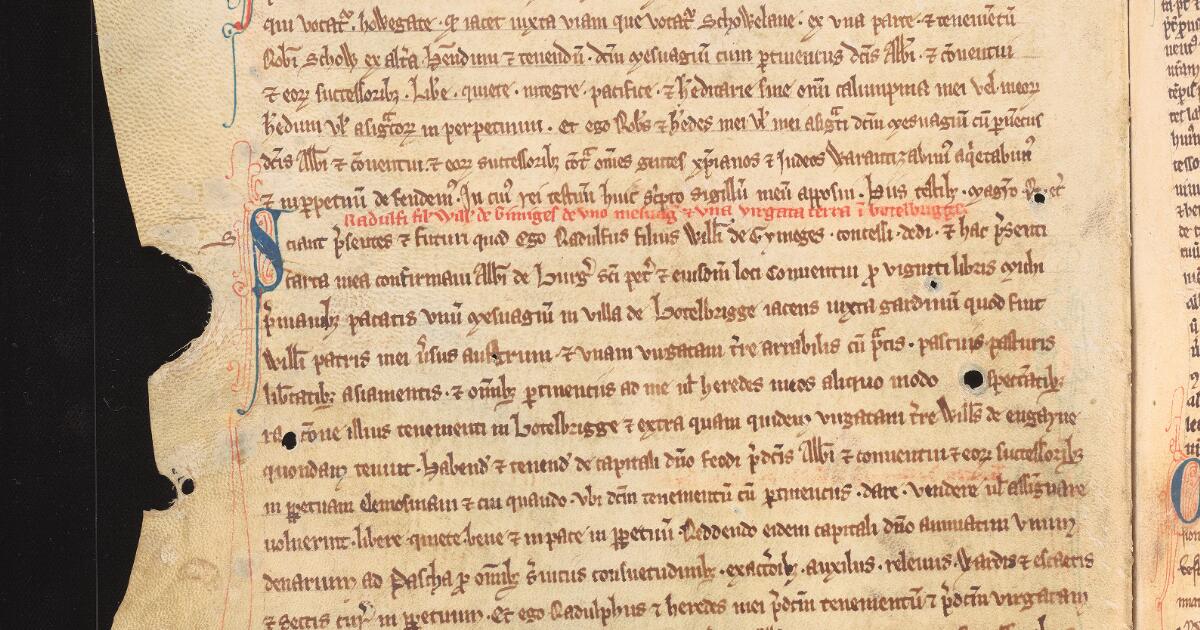 qui votatr̃. howegate. q̃ iacet iuxta viam que votatr̃ Schowelane. ex vna parte. ⁊ tenemẽtũ
Robĩ Schow ex alĩa. hẽndum ⁊ tenendũ. dc̃m mesuagiũ cum ptinentiis dc̃is Abbĩ. ⁊ cõuentui
⁊ eoꝝ successoribꝫ. libe. quiete. integre. pacifice. ⁊ h̃editarie sine oñi calumpnia mei vel meoꝝ
h̃edum vl̃ asig̃toꝝ in perpetuum. Et ego Rob̃s ⁊ h̃edes mei vl̃ mei asig̃ti dc̃m mesuagiũ cũ ꝑtinẽciis
dc̃is Abbĩ ⁊ cõuentui. ⁊ eoꝝ successoribꝫ cõt̃ om̃es gentes xp̃ianos ⁊ Judeos Warantizabim᷒ aq̃etabim᷒
⁊ inꝑpetuũ defendem᷒. In cui᷒ rei testim̃ huic sc̃pto sigillũ meũ apposui. Hiis testibꝫ. magr̃o
Radulfi fil̃ Will̃ de Gimiges de vno mesuag̃ ⁊ vna virgata terra ĩ botelbrigge.
Sciant p̃sentes ⁊ futuri quod Ego Radulfus filius Willĩ de Gymeges. concessi. dedi. ⁊ hac p̃senti
carta mea confirmaui Abbĩ de Burg̃ sc̃i pet̃ ⁊ eiusdm̃ loci Conuentui ꝓ viginti libris michi
p̃manibꝫ pacatis vnũ mesuagiũ in villa de Botelbrigge iacens iuxta gardinũ quod fuit
Willĩ patris mei ũsus austrum. ⁊ vnam virgatam t̃re arrabilis cũ p̃tis. pascuis pasturis
lib̃tatibꝫ asiamentis. ⁊ om̃ibꝫ ꝑtinentiis ad me ul̃ heredes meos aliquo modo spectãtibꝫ
ra cõne illius tenementi in Botelbrigge ⁊ extra quam quidem virgatam t̃re Will̃s de eugayne
quondam tenuit. Habend̃ ⁊ tenend̃ de capitali dño feodi p̃dc̃is Abbĩ ⁊ conuentui ⁊ eoꝝ successoribꝫ
in ꝑpetuam elemosinam ⁊ cui quando. vbi dc̃m tenementũ cũ ꝑtinenciis. dare. vendere ul̃ assignare
voluerint. libere. quiete. bene ⁊ in pace in ꝑpetuũ. Reddendo eidem capitali dño annuatim vnum
denarium ad Pascha ꝓ om̃ibꝫ s̃uiciis consuetudinibꝫ. exactõibꝫ. auxiliis. releuiis. Wardis ⁊ escaetis
⁊ sectis cur̃ in ꝑpetuum. Et ego Radulphus ⁊ heredes mei p̃dc̃m tenementũ ⁊ p̃dc̃m virgatam